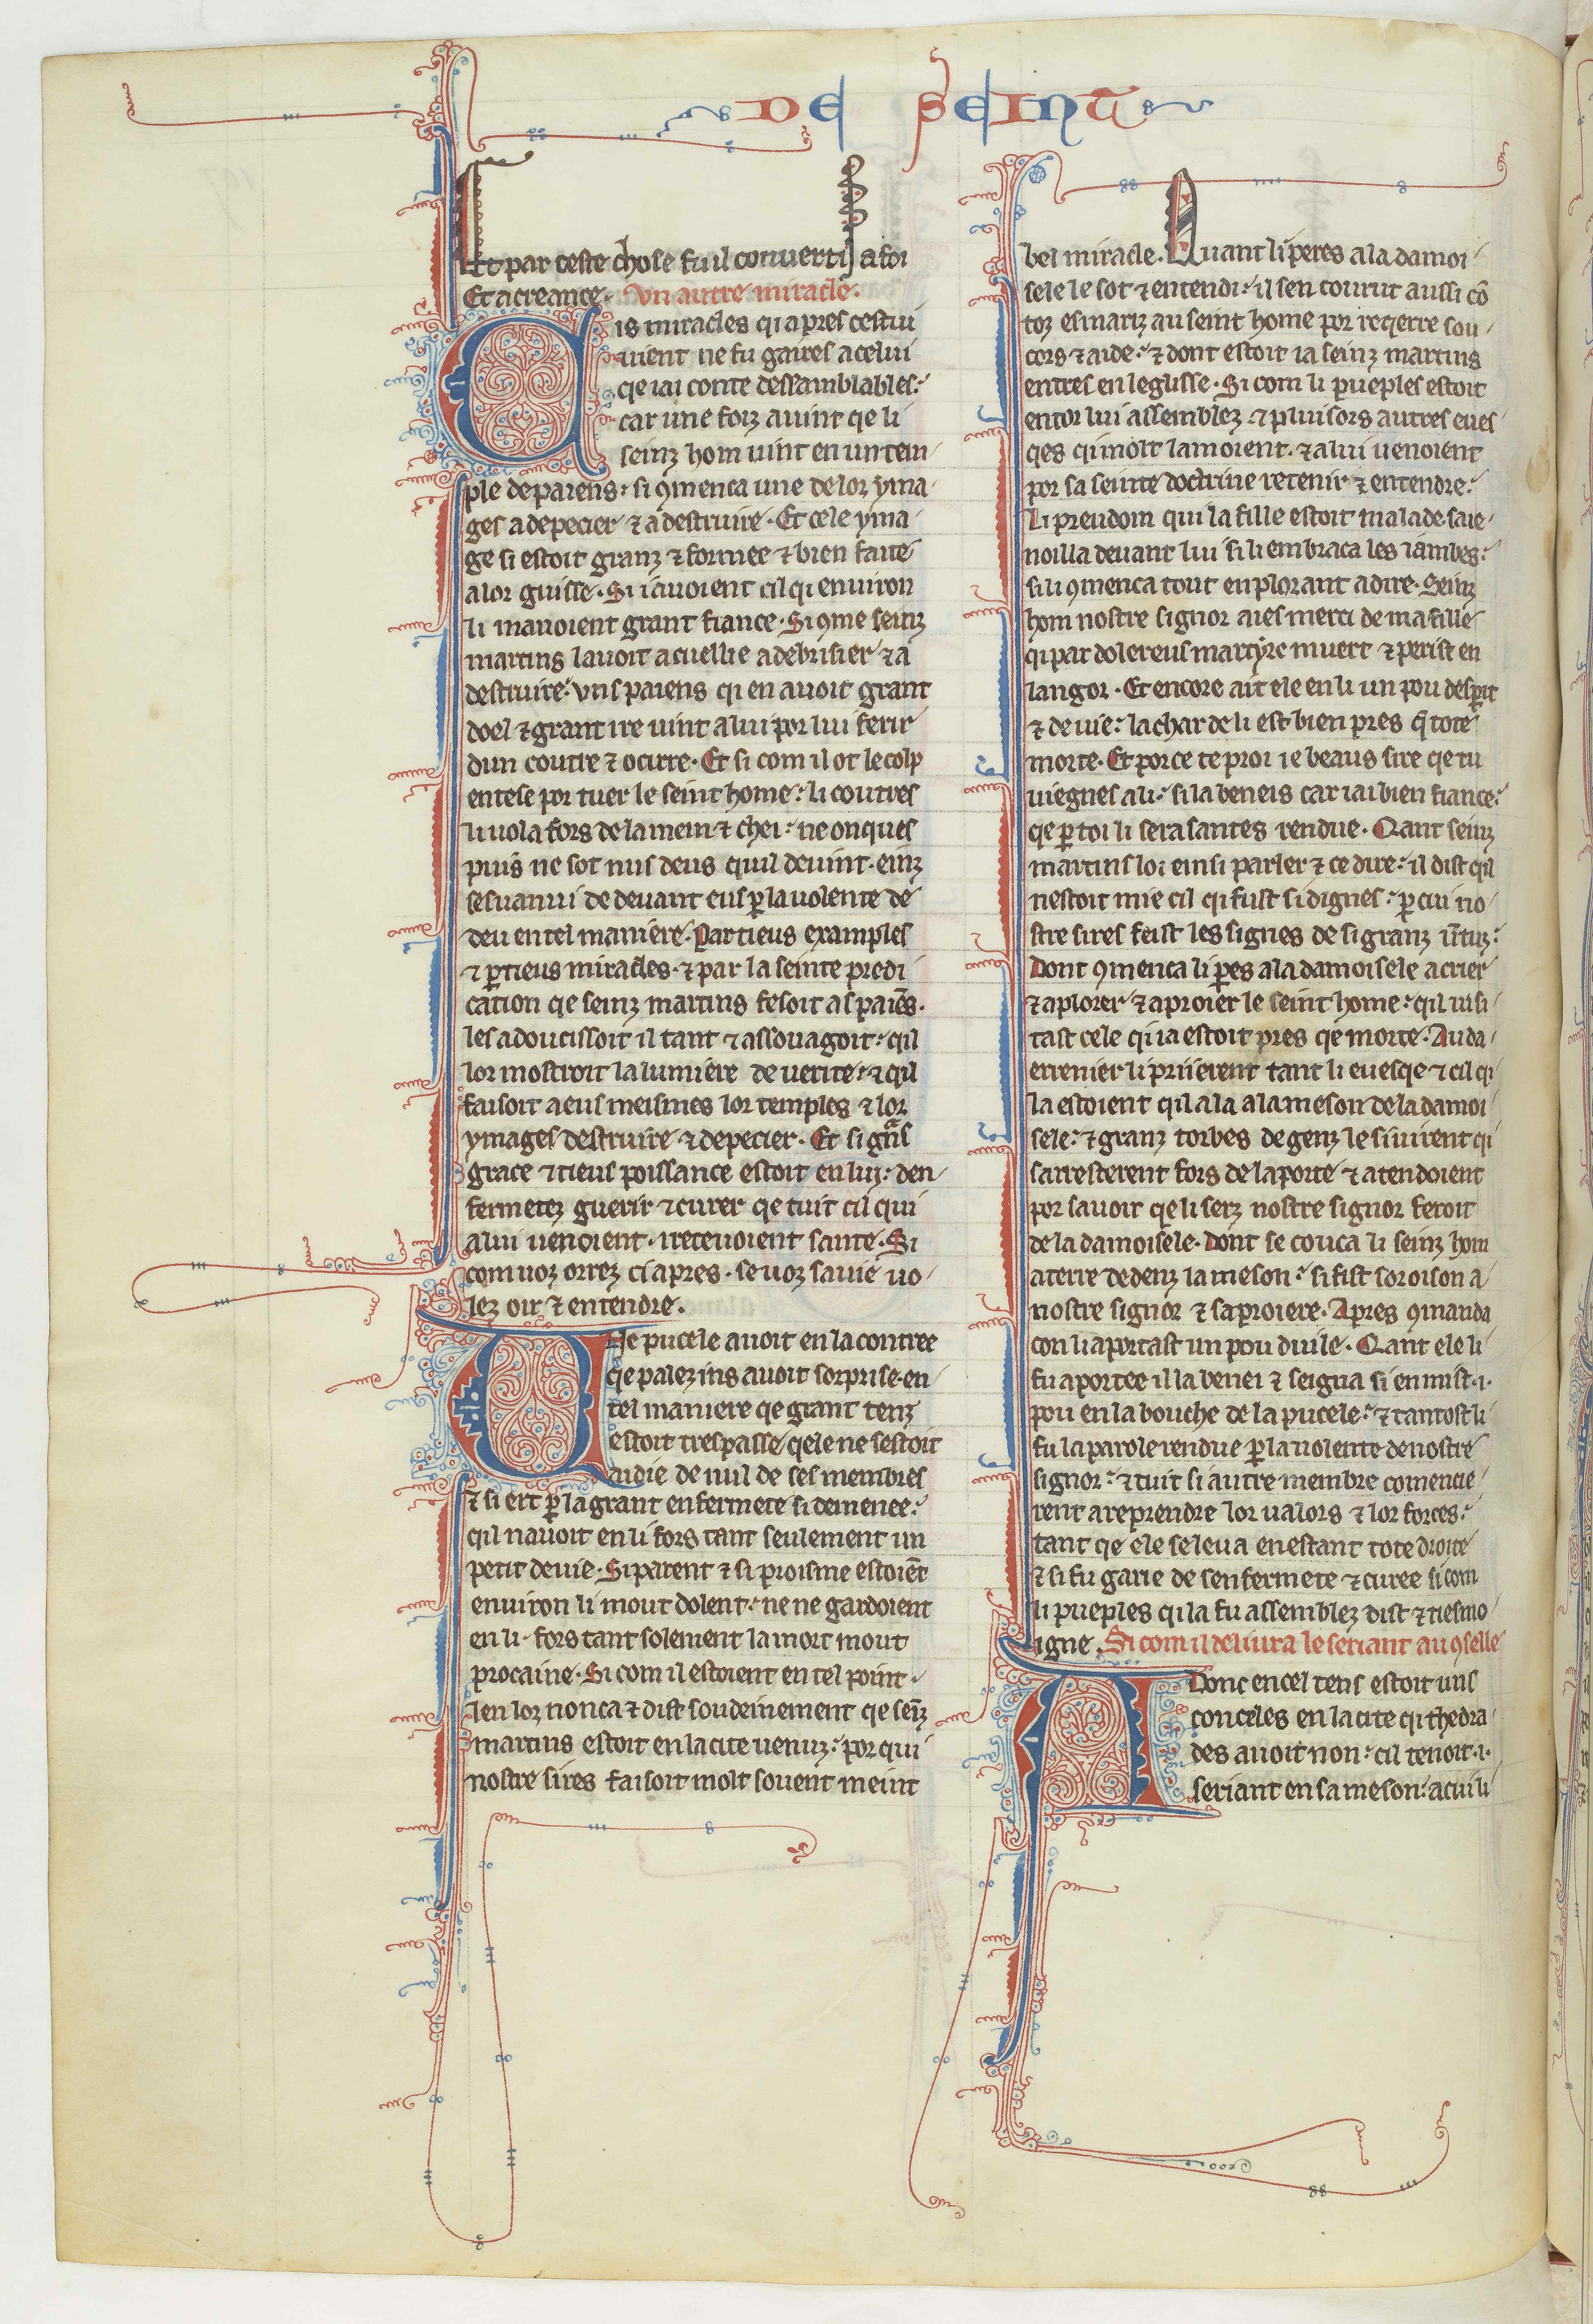 DE SEINT
Et par ceste chose fu il converti a foi
Et a creance. Un autre miracle.
Cis miracles qi apres cestui
vient ne fu gaires a celui
qe iai conte dessamblables:
car une foiz avint qe li
seinz hom vint en un tem-
ple de paiens: si ꝯmenca une de lor yma-
ges a depecier ⁊ a destruire. Et cele yma-
ge si estoit granz ⁊ formee ⁊ bien faite
a lor guisse. Si i avoient cil qi environ
li manoient grant fiance. Si ꝯme seinz
martins lavoit acuellie a debrisier ⁊ a
destruire: uns paiens qi en avoit grant
doel ⁊ grant ire vint a lui por lui ferir
dun coutre ⁊ ocirre. Et si com il ot le colp
entese por tuer le seint home: li coutres
li vola fors de la mein ⁊ chei: ne onques
puis ne sot nus deus quil devint. einz
sesvanui de devant eus ꝑ la volente de
deu en tel maniere. Par tieus examples
⁊ ꝑ tieus miracles. ⁊ par la seinte predi-
cation qe seinz martins fesoit as paiēs.
les adoucissoit il tant ⁊ assouagoit: qil
lor mostroit la lumiere de verite: ⁊ qil
faisoit a eus meismes lor temples ⁊ lor
ymages destruire ⁊ depecier. Et si gͣns
grace ⁊ tieus poissance estoit en lui: den-
fermetez guerir ⁊ curer qe tuit cil qui
a lui venoient. i recevoient sante. Si
com voz orrez ci apres. se voz savie vo-
lez oir ⁊ entendre.
Une pucele avoit en la contree
qe palezins avoit sorprise. en
tel maniere qe grant tenz
estoit trespasse qele ne sestoit
aidie de nul de ses membres
⁊ si ert ꝑ la grant enfermete si demenee:
qil navoit en li fors tant seulement un
petit de vie. Si parent ⁊ si proisme estoiēt
environ li mout dolent: ne ne gardoient
en li. fors tant solement la mort mout
procaine. Si com il estoient en tel point.
len lor nonca ⁊ dist soudeinement qe seīz
martins estoit en la cite venuz: por qui
nostre sires faisoit molt sovent meint
bel miracle. Quant li peres a la damoi-
sele le sot ⁊ entendi: il sen courut aussi cō
toz esmariz au seint home por reqerre sou-
cors ⁊ aide: ⁊ dont estoit ia seinz martins
entres en leglisse. Si com li pueples estoit
entor lui assemblez. ⁊ pluisors autres eves-
qes qi molt lamoient. ⁊ a lui venoient
por sa seinte doctrine retenir ⁊ entendre:
Li preudom qui la fille estoit malade. saie-
noilla devant lui si li embraca les iambes:
si li ꝯmenca tout en plorant a dire. Seinz
hom nostre signor aies merci de ma fille
qi par dolereus martyre muert ⁊ perist en
langor. Et encore ait ele en li un pou desꝑit
⁊ de vie: la char de li est bien pres q̄ tote
morte. Et por ce te proi ie beaus sire qe tu
viegnes a li: si la beneis car iai bien fiance:
qe ꝑ toi li sera santes rendue. Qant seinz
martins loi einsi parler ⁊ ce dire: il dist qil
nestoit mie cil qi fust si dignes: ꝑ cui no-
stre sires feist les signes de si granz v̄tuz:
Dont ꝯmenca li ꝑes a la damoisele a crier
⁊ a plorer ⁊ a proier le seint home: qil visi-
tast cele qi ia estoit pres qe morte. Au da-
erenier li priierent tant li evesqe ⁊ cil qi
la estoient qil ala a la meson de la damoi-
sele: ⁊ granz torbes de genz le sivirent qi
sarresterent fors de la porte ⁊ atendoient
por savoir qe li serz nostre signor feroit
de la damoisele. Dont se couca li seinz hom
a terre dedenz la meson: si fist soroison a
nostre signor ⁊ sa proiere. Apres ꝯmanda
con li aportast un pou duile. Qant ele li
fu aportee il la benei ⁊ seigna si en mist .i.
pou en la bouche de la pucele: ⁊ tantost li
fu la parole rendue ꝑ la volente de nostre
signor: ⁊ tuit si autre membre comencie-
rent a reprendre lor valors ⁊ lor forces:
tant qe ele se leva en estant tote droite
⁊ si fu garie de senfermete ⁊ curee si com
li pueples qi la fu assemblez dist ⁊ tiesmo-
igne. Si com il delivra le seriant au ꝯselle
A Donc en cel tens estoit uns
conceles en la cite qi thedra-
des avoit non: cil tenoit .i.
seriant en sa meson: a cui li